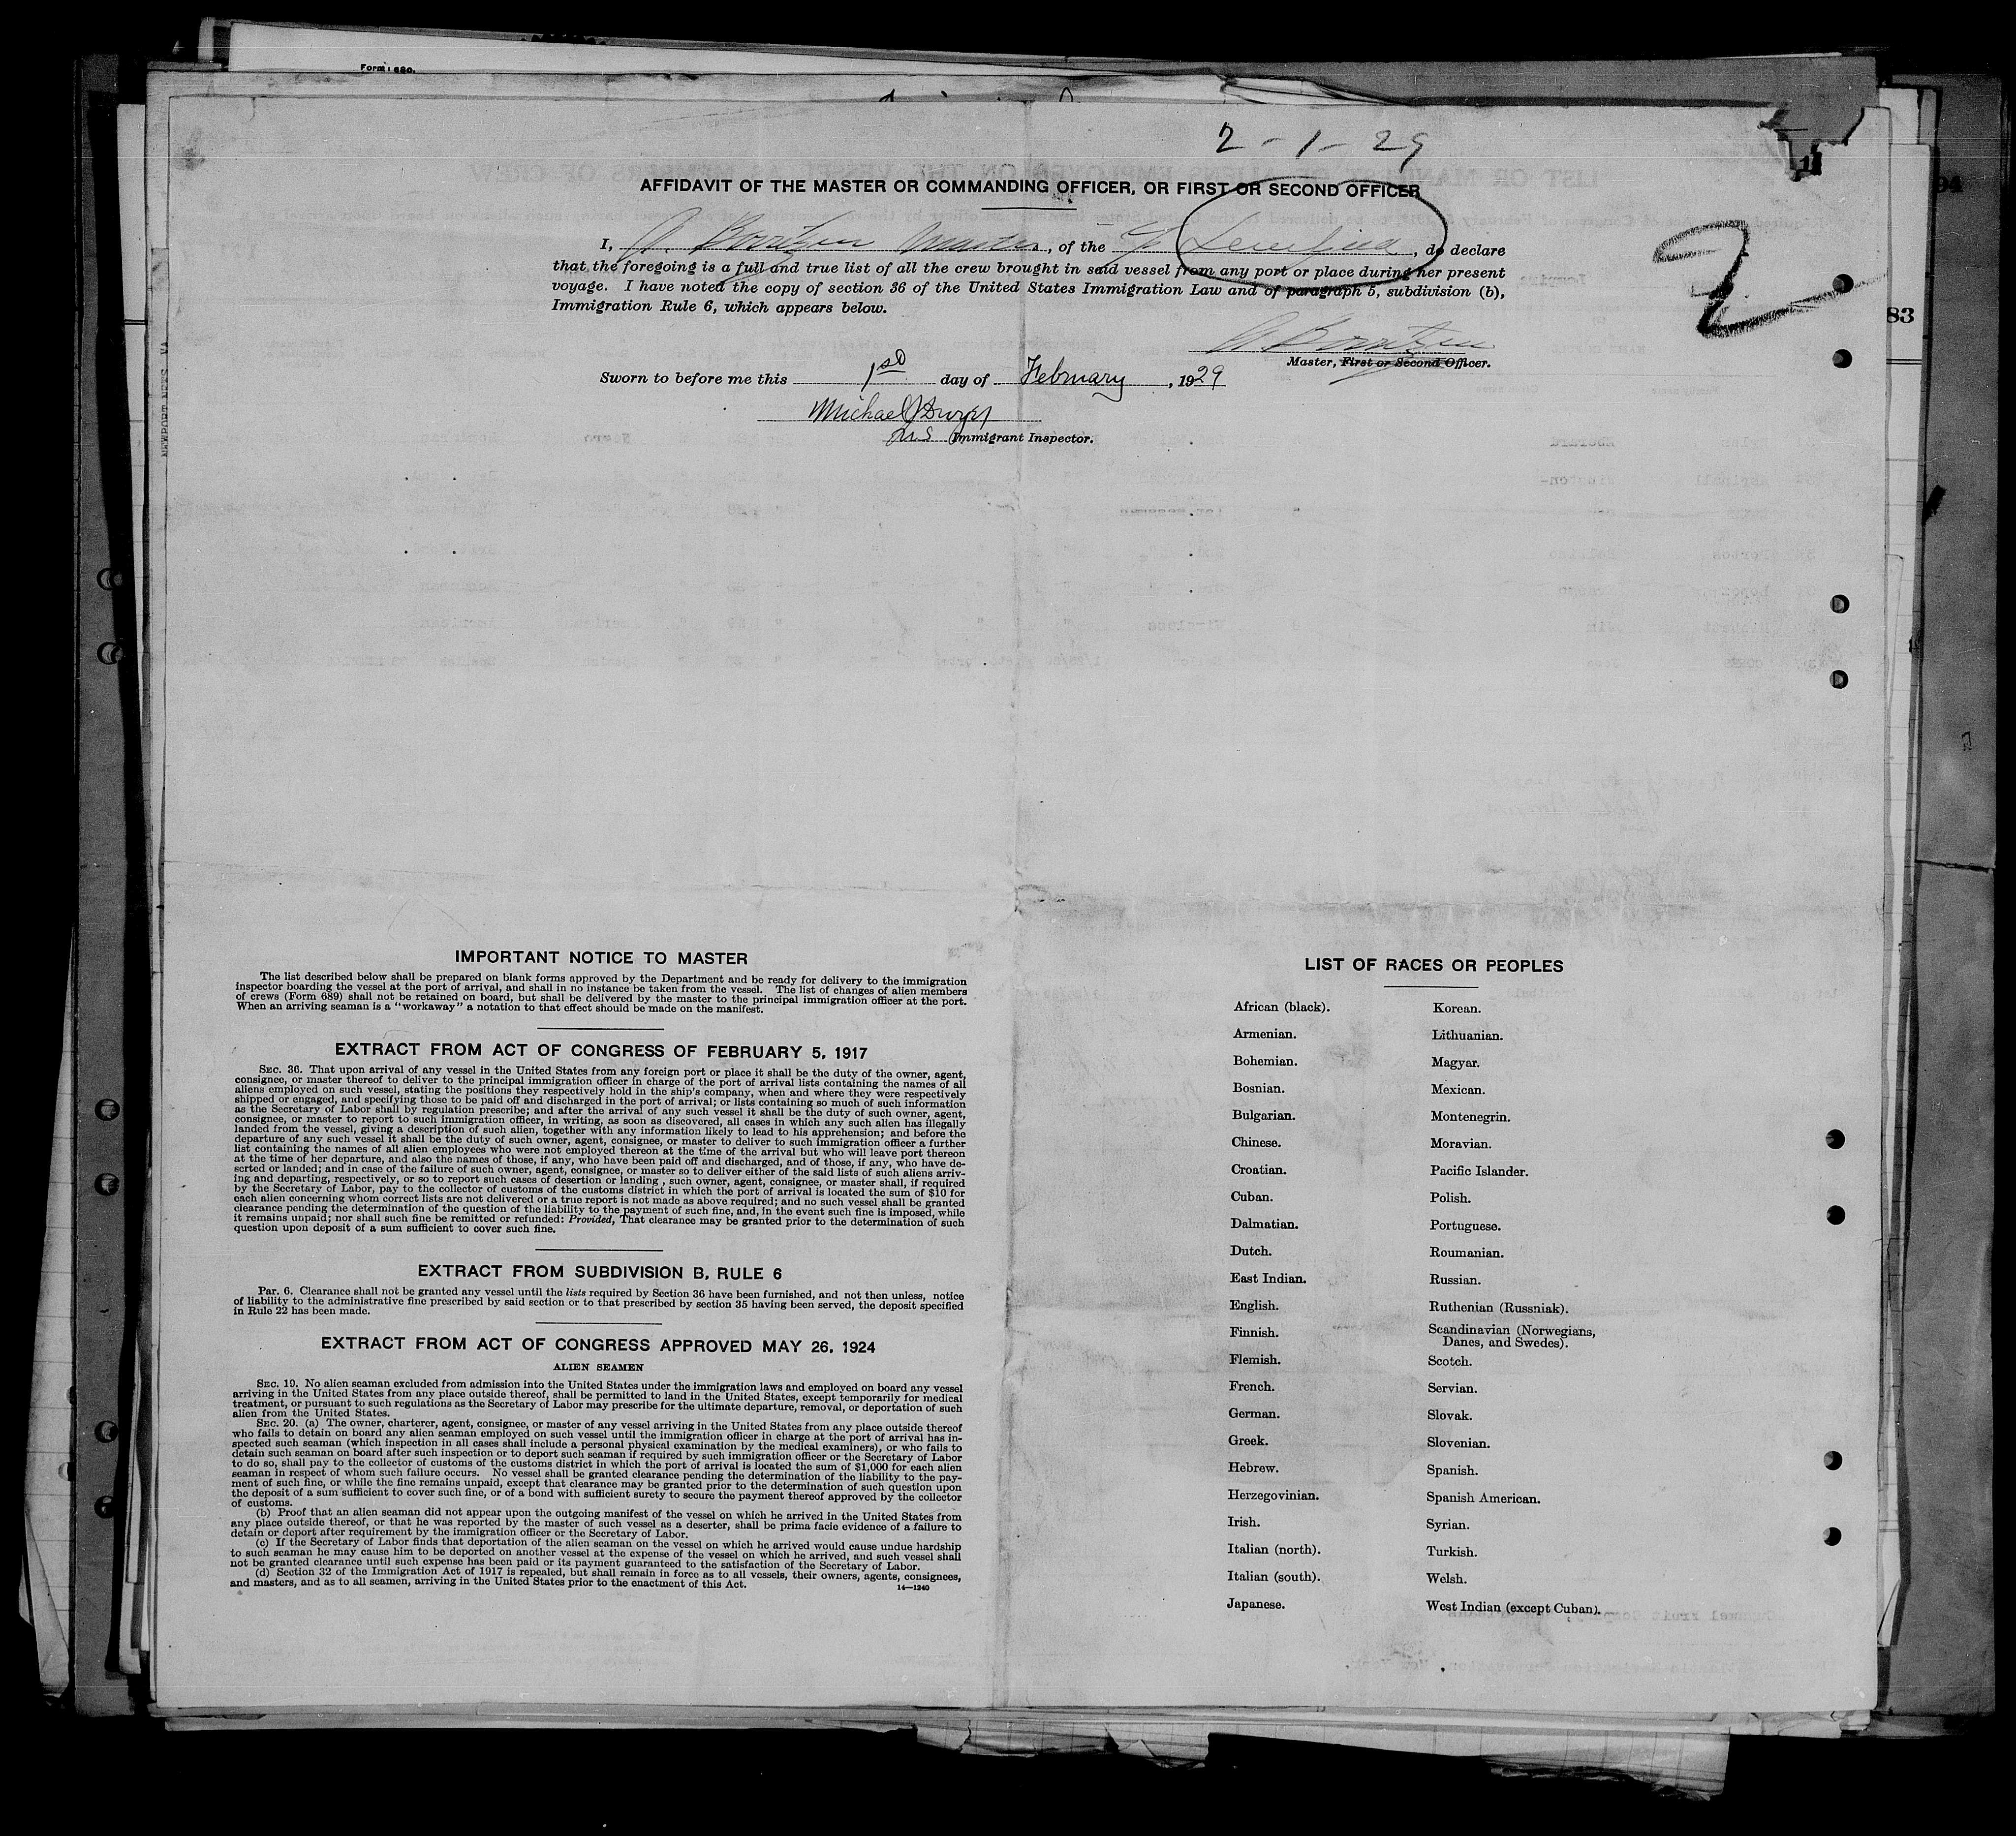 Form 680.
2-1-29
AFFIDAVIT OF THE MASTER OR COMMANDING OFFICER, OR FIRST OR SECOND OFFICER
I, Master, of the , do declare
that the foregoing is a full and true list of all the crew brought in said vessel from any port or place during her present
voyage. I have noted the copy of section 36 of the United States Immigration Law and of paragraph 5, subdivision (b),
Immigration Rule 6, which appears below.
2
83
94
Master, First or Second Officer.
Sworn to before me this 1st day of February, 1929
Michael
Immigrant Inspector.
NEWPORT NEWS VA
IMPORTANT NOTICE TO MASTER
The list described below shall be prepared on blank forms approved by the Department and be ready for delivery to the immigration
inspector boarding the vessel at the port of arrival, and shall in no instance be taken from the vessel. The list of changes of alien members
of crews (Form 689) shall not be retained on board, but shall be delivered by the master to the principal immigration officer at the port.
When an arriving seaman is a "workaway" a notation to that effect should be made on the manifest.
EXTRACT FROM ACT OF CONGRESS OF FEBRUARY 5, 1917
SEC. 36. That upon arrival of any vessel in the United States from any foreign port or place it shall be the duty of the owner, agent,
consignee, or master thereof to deliver to the principal immigration officer in charge of the port of arrival lists containing the names of all
aliens employed on such vessel, stating the positions they respectively hold in the ship's company, when and where they were respectively
shipped or engaged, and specifying those to be paid off and discharged in the port of arrival; or lists containing so much of such information
as the Secretary of Labor shall by regulation prescribe; and after the arrival of any such vessel it shall be the duty of such owner, agent,
consignee, or master to report to such immigration officer, in writing, as soon as discovered, all cases in which any such alien has illegally
landed from the vessel, giving a description of such alien, together with any information likely to lead to his apprehension; and before the
departure of any such vessel it shall be the duty of such owner, agent, consignee, or master to deliver to such immigration officer a further
list containing the names of all alien employees who were not employed thereon at the time of the arrival but who will leave port thereon
at the time of her departure, and also the names of those, if any, who have been paid off and discharged, and of those, if any, who have de-
serted or landed; and in case of the failure of such owner, agent, consignee, or master so to deliver either of the said lists of such aliens arriv-
ing and departing, respectively, or so to report such cases of desertion or landing , such owner, agent, consignee, or master shall, if required
by the Secretary of Labor, pay to the collector of customs of the customs district in which the port of arrival is located the sum of $10 for
each alien concerning whom correct lists are not delivered or a true report is not made as above required; and no such vessel shall be granted
clearance pending the determination of the question of the liability to the payment of such fine, and, in the event such fine is imposed, while
it remains unpaid; nor shall such fine be remitted or refunded: Provided, That clearance may be granted prior to the determination of such
question upon deposit of a sum sufficient to cover such fine.
EXTRACT FROM SUBDIVISION B, RULE 6
Par. 6. Clearance shall not be granted any vessel until the lists required by Section 36 have been furnished, and not then unless, notice
of liability to the administrative fine prescribed by said section or to that prescribed by section 35 having been served, the deposit specified
in Rule 22 has been made.
EXTRACT FROM ACT OF CONGRESS APPROVED MAY 26, 1924
ALIEN SEAMEN
SEC. 19. No alien seaman excluded from admission into the United States under the immigration laws and employed on board any vessel
arriving in the United States from any place outside thereof, shall be permitted to land in the United States, except temporarily for medical
treatment, or pursuant to such regulations as the Secretary of Labor may prescribe for the ultimate departure, removal, or deportation of such
alien from the United States.
SEC. 20. (a) The owner, charterer, agent, consignee, or master of any vessel arriving in the United States from any place outside thereof
who fails to detain on board any alien seaman employed on such vessel until the immigration officer in charge at the port of arrival has in-
spected such seaman (which inspection in all cases shall include a personal physical examination by the medical examiners), or who fails to
detain such seaman on board after such inspection or to deport such seaman if required by such immigration officer or the Secretary of Labor
to do so, shall pay to the collector of customs of the customs district in which the port of arrival is located the sum of $1,000 for each alien
seaman in respect of whom such failure occurs. No vessel shall be granted clearance pending the determination of the liability to the pay-
ment of such fine, or while the fine remains unpaid, except that clearance may be granted prior to the determination of such question upon
the deposit of a sum sufficient to cover such fine, or of a bond with sufficient surety to secure the payment thereof approved by the collector
of customs.
(b) Proof that an alien seaman did not appear upon the outgoing manifest of the vessel on which he arrived in the United States from
any place outside thereof, or that he was reported by the master of such vessel as a deserter, shall be prima facie evidence of a failure to
detain or deport after requirement by the immigration officer or the Secretary of Labor.
(c) If the Secretary of Labor finds that deportation of the alien seaman on the vessel on which he arrived would cause undue hardship
to such seaman he may cause him to be deported on another vessel at the expense of the vessel on which he arrived, and such vessel shall
not be granted clearance until such expense has been paid or its payment guaranteed to the satisfaction of the Secretary of Labor.
(d) Section 32 of the Immigration Act of 1917 is repealed, but shall remain in force as to all vessels, their owners, agents, consignees,
and masters, and as to all seamen, arriving in the United States prior to the enactment of this Act.
14—1240
LIST OF RACES OR PEOPLES
African (black).
Armenian.
Bohemian.
Bosnian.
Bulgarian.
Chinese.
Croatian.
Cuban.
Dalmatian.
Dutch.
East Indian.
English.
Finnish.
Flemish.
French.
German.
Greek.
Hebrew.
Herzegovinian.
Irish.
Italian (north).
Italian (south).
Japanese.
Korean.
Lithuanian.
Magyar.
Mexican.
Montenegrin.
Moravian.
Pacific Islander.
Polish.
Portuguese.
Roumanian.
Russian.
Ruthenian (Russniak).
Scandinavian (Norwegians,
Danes, and Swedes).
Scotch.
Servian.
Slovak.
Slovenian.
Spanish.
Spanish American.
Syrian.
Turkish.
Welsh.
West Indian (except Cuban).